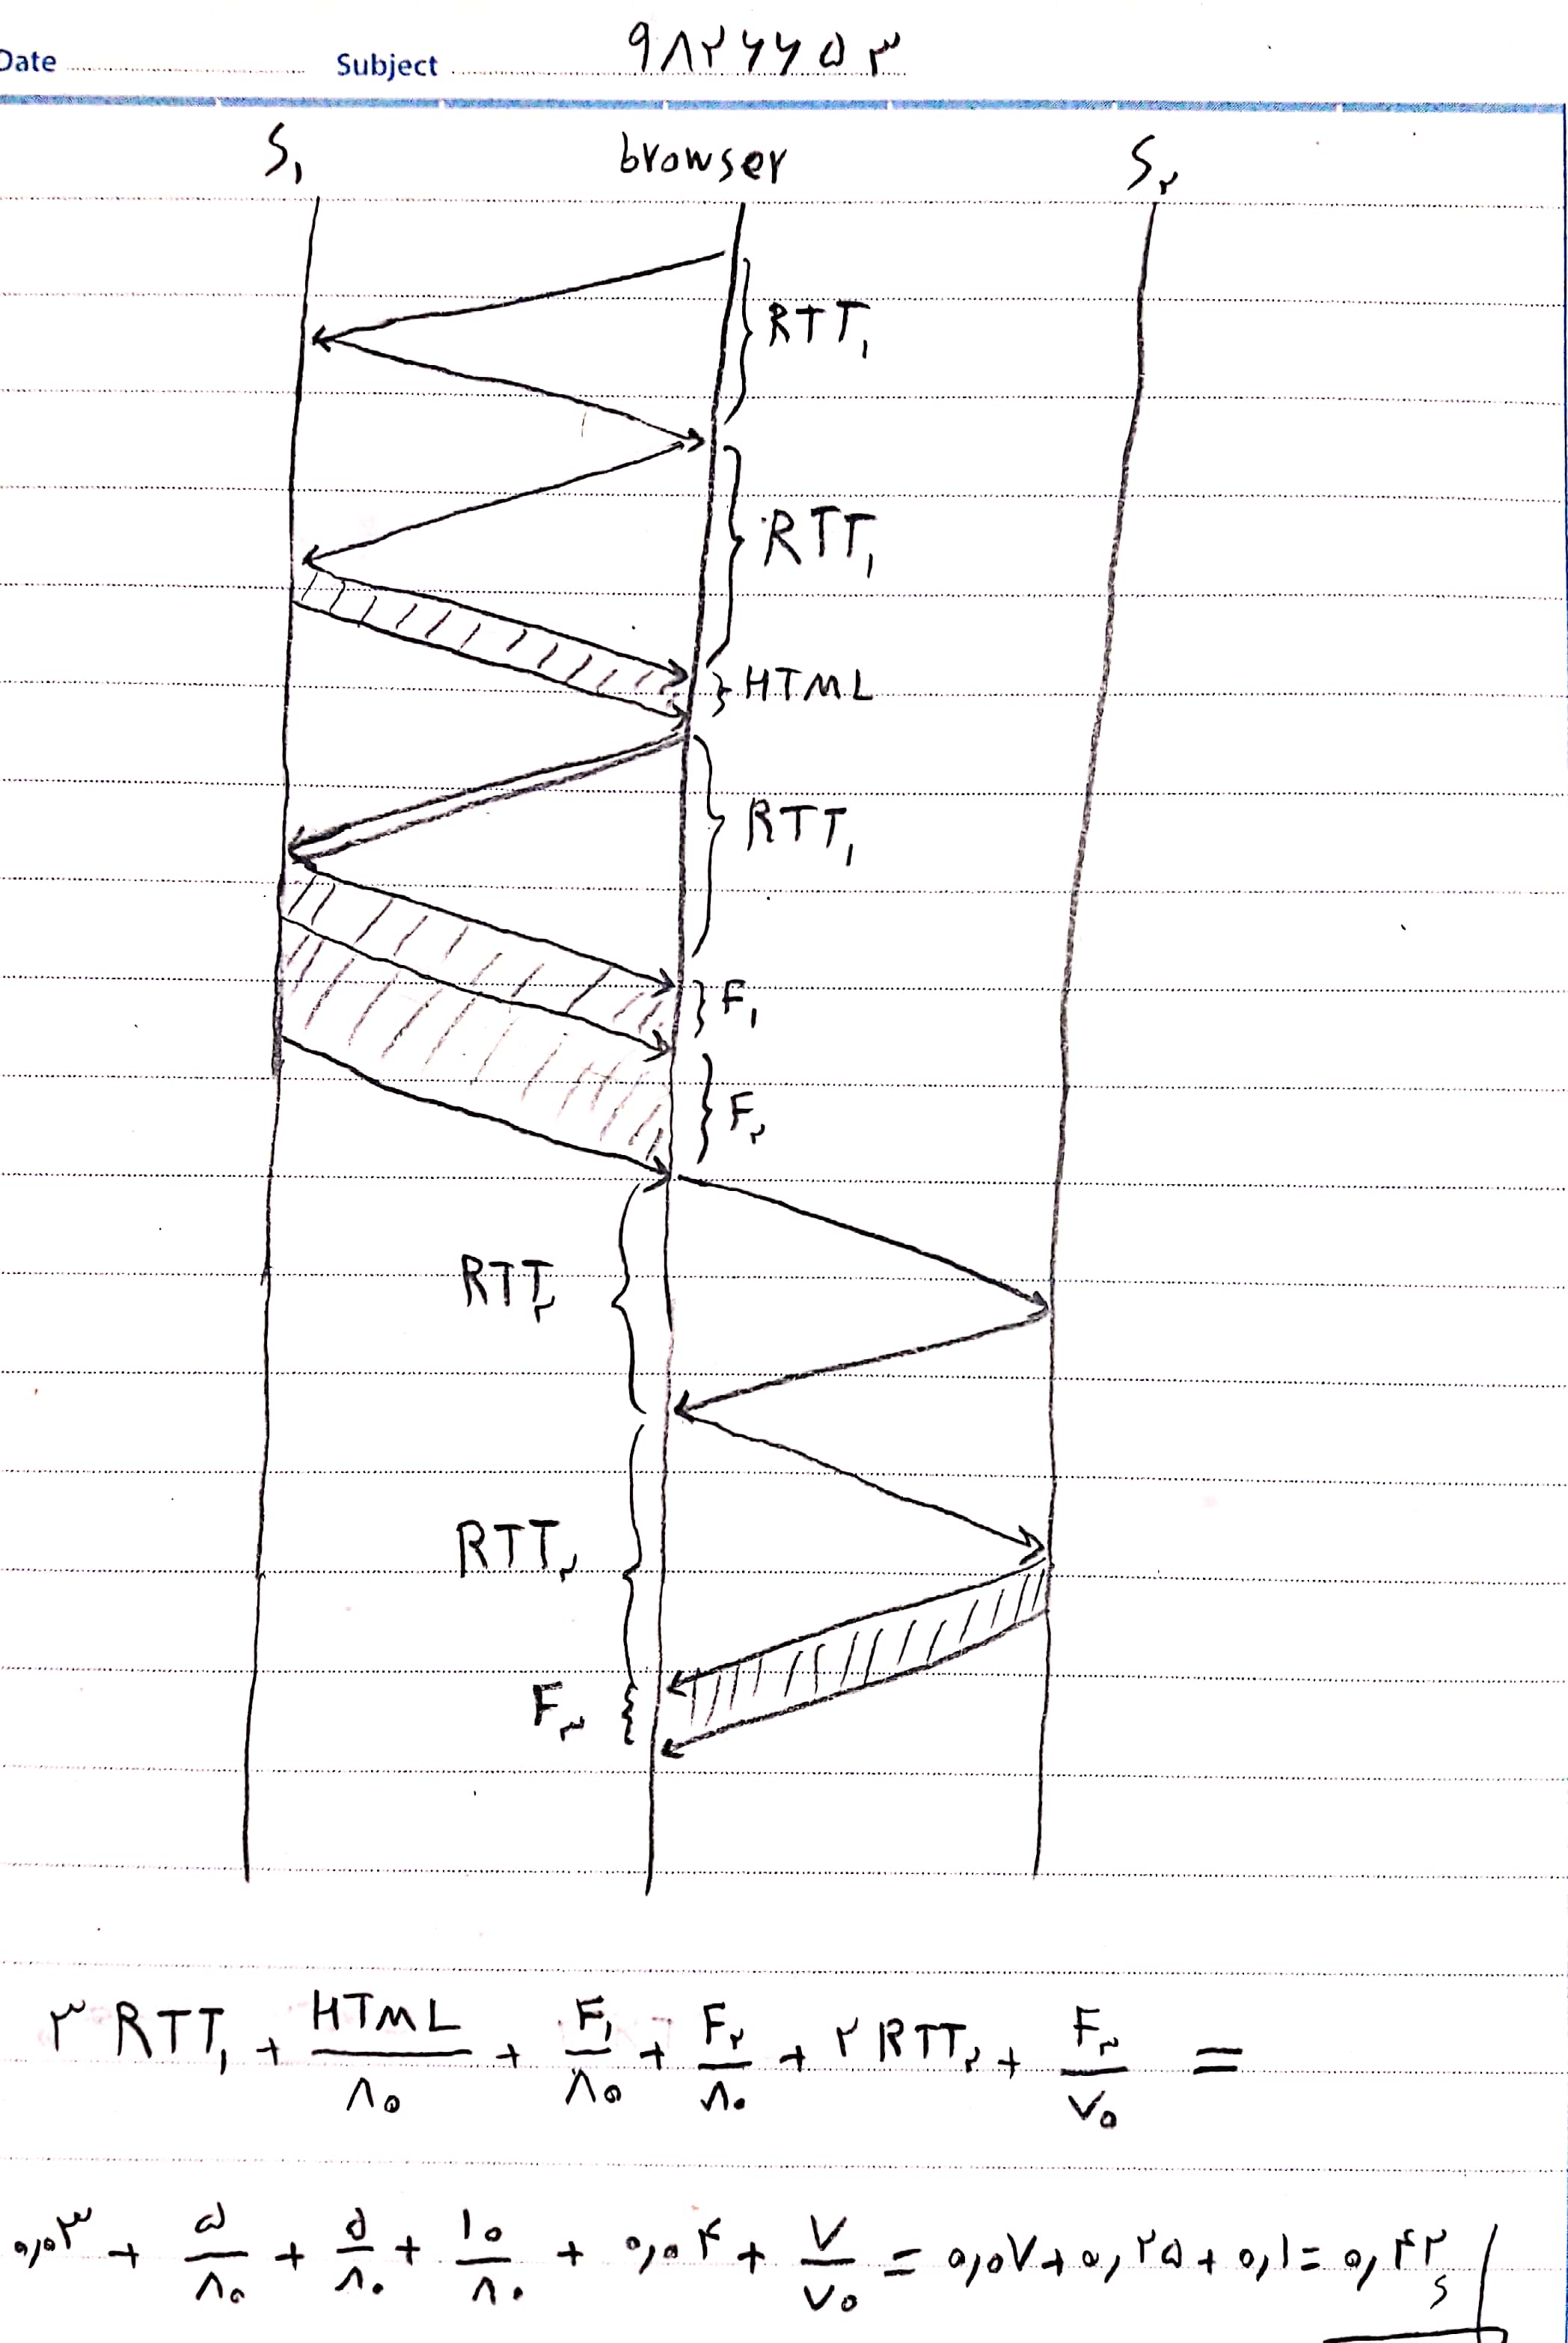 Date Subject ۹۸۲۶۶۵۳
S۱ browser S۲
RTT۱
RTT۱
HTML
RTT۱
F۱
F۲
RTT۲
RTT۲
F۳
۳ RTT۱ + HTML/۸۰ + F۱/۸۰ + F۲/۸۰ + ۲ RTT۲ + F۳/۷۰ =
۰,۰۳ + ۵/۸۰ + ۵/۸۰ + ۱۰/۸۰ + ۰,۰۴ + ۷/۷۰ = ۰,۰۷ + ۰,۲۵ + ۰,۱ = ۰,۴۲ s